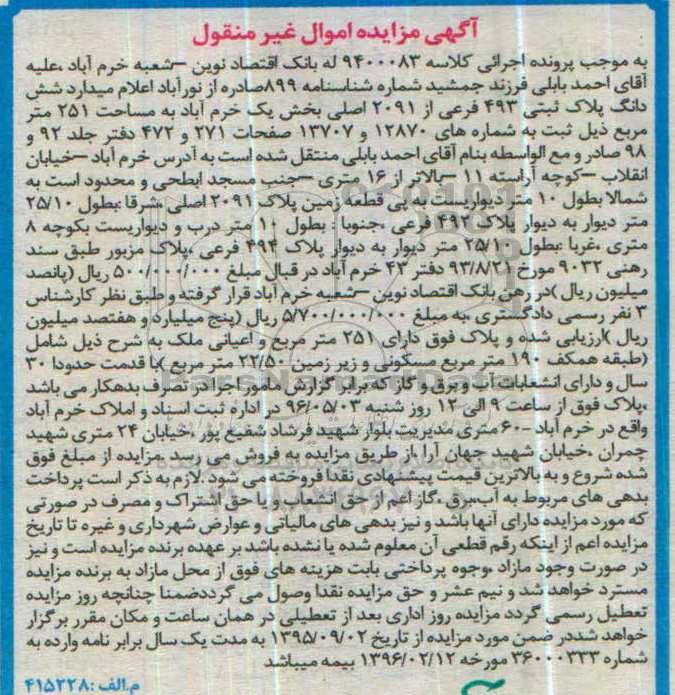 آگهی مزایده اموال غیر منقول
به موجب پرونده اجرائی کلاسه ۹۴۰۰۰۸۳ له بانک اقتصاد نوین –شعبه خرم آباد ،علیه
آقای احمد بابلی فرزند جمشید شماره شناسنامه ۸۹۹صادره از نورآباد اعلام میدارد شش
دانگ پلاک ثبتی ۴۹۳ فرعی از ۲۰۹۱ اصلی بخش یک خرم آباد به مساحت ۲۵۱ متر
مربع ذیل ثبت به شماره های ۱۲۸۷۰ و ۱۳۷۰۷ صفحات ۲۷۱ و ۴۷۲ دفتر جلد ۹۲ و
۹۸ صادر و مع الواسطه بنام آقای احمد بابلی منتقل شده است به آدرس خرم آباد –خیابان
انقلاب –کوچه آراسته ۱۱ –بالاتر از ۱۶ متری –جنب مسجد ابطحی و محدود است به
شمالا بطول ۱۰ متر دیواریست به پی قطعه زمین پلاک ۲۰۹۱ اصلی ،شرقا :بطول ۲۵/۱۰
متر دیوار به دیوار پلاک ۴۹۲ فرعی ،جنوبا : بطول ۱۰ متر درب و دیواریست بکوچه ۸
متری ،غربا :بطول ۲۵/۱۰ متر دیوار به دیوار پلاک ۴۹۴ فرعی ،پلاک مزبور طبق سند
رهنی ۹۰۳۲ مورخ ۹۳/۸/۲۱ دفتر ۴۳ خرم آباد در قبال مبلغ ۵۰۰/۰۰۰/۰۰۰ ریال (پانصد
میلیون ریال )در رهن بانک اقتصاد نوین –شعبه خرم آباد قرار گرفته و طبق نظر کارشناس
۳ نفر رسمی دادگستری ،به مبلغ ۵/۷۰۰/۰۰۰/۰۰۰ ریال (پنج میلیارد و هفتصد میلیون
ریال )ارزیابی شده و پلاک فوق دارای ۲۵۱ متر مربع و اعیانی ملک به شرح ذیل شامل
(طبقه همکف ۱۹۰ متر مربع مسکونی و زیر زمین ۲۲/۵۰ متر مربع )با قدمت حدودا ۳۰
سال و دارای انشعابات آب و برق و گاز که برابر گزارش مامور اجرا در تصرف بدهکار می باشد
،پلاک فوق از ساعت ۹ الی ۱۲ روز شنبه ۹۶/۰۵/۰۳ در اداره ثبت اسناد و املاک خرم آباد
واقع در خرم آباد -۶۰ متری مدیریت بلوار شهید فرشاد شفیع پور ،خیابان ۲۴ متری شهید
چمران ،خیابان شهید جهان آرا ،از طریق مزایده به فروش می رسد .مزایده از مبلغ فوق
شده شروع و به بالاترین قیمت پیشنهادی نقدا فروخته می شود .لازم به ذکر است پرداخت
بدهی های مربوط به آب،برق ،گاز اعم از حق انشعاب و یا حق اشتراک و مصرف در صورتی
که مورد مزایده دارای آنها باشد و نیز بدهی های مالیاتی و عوارض شهرداری و غیره تا تاریخ
مزایده اعم از اینکه رقم قطعی آن معلوم شده یا نشده باشد بر عهده برنده مزایده است و نیز
در صورت وجود مازاد ،وجوه پرداختی بابت هزینه های فوق از محل مازاد به برنده مزایده
مسترد خواهد شد و نیم عشر و حق مزایده نقدا وصول می گرددضمنا چنانچه روز مزایده
تعطیل رسمی گردد مزایده روز اداری بعد از تعطیلی در همان ساعت و مکان مقرر برگزار
خواهد شددر ضمن مورد مزایده از تاریخ ۱۳۹۵/۰۹/۰۲ به مدت یک سال برابر نامه وارده به
شماره ۳۶۰۰۰۳۳۳ مورخه ۱۳۹۶/۰۲/۱۲ بیمه میباشد
م.الف :۴۱۵۲۲۸